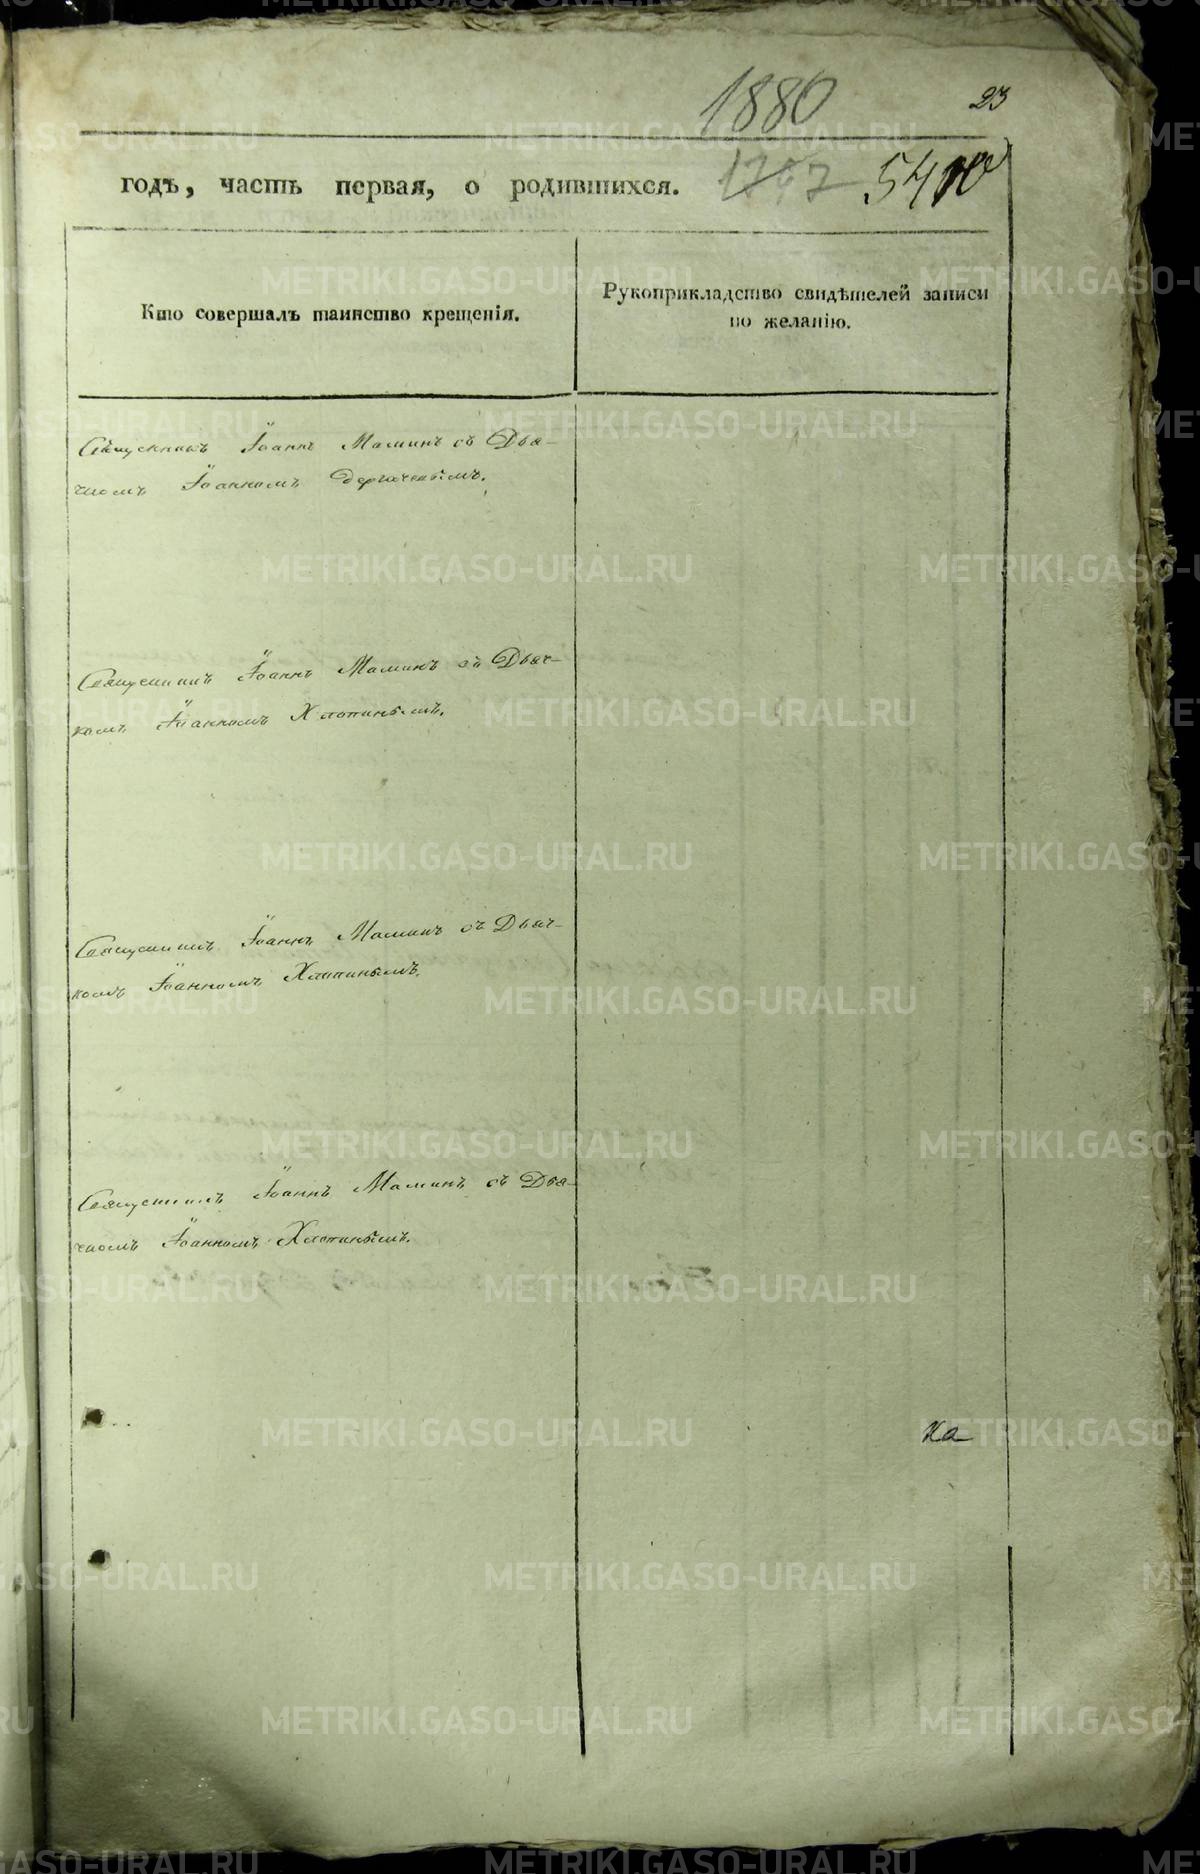 1880
23
годъ, часть первая, о родившихся.
5410
Кто совершалъ таинство крещенія.
Рукоприкладство свидѣтелей записи
по желанію.
Священникъ Іоаннъ Маминъ съ Дья-
чкомъ Іоанномъ
Священникъ Іоаннъ Маминъ съ Дьяч-
комъ Іоанномъ Хлопинымъ.
Священникъ Іоаннъ Маминъ съ Дьяч-
комъ Іоанномъ Хлопинымъ.
Священникъ Іоаннъ Маминъ съ Дья-
чкомъ Іоанномъ Хлопинымъ.
ка
METRIKI.GASO-URAL.RU